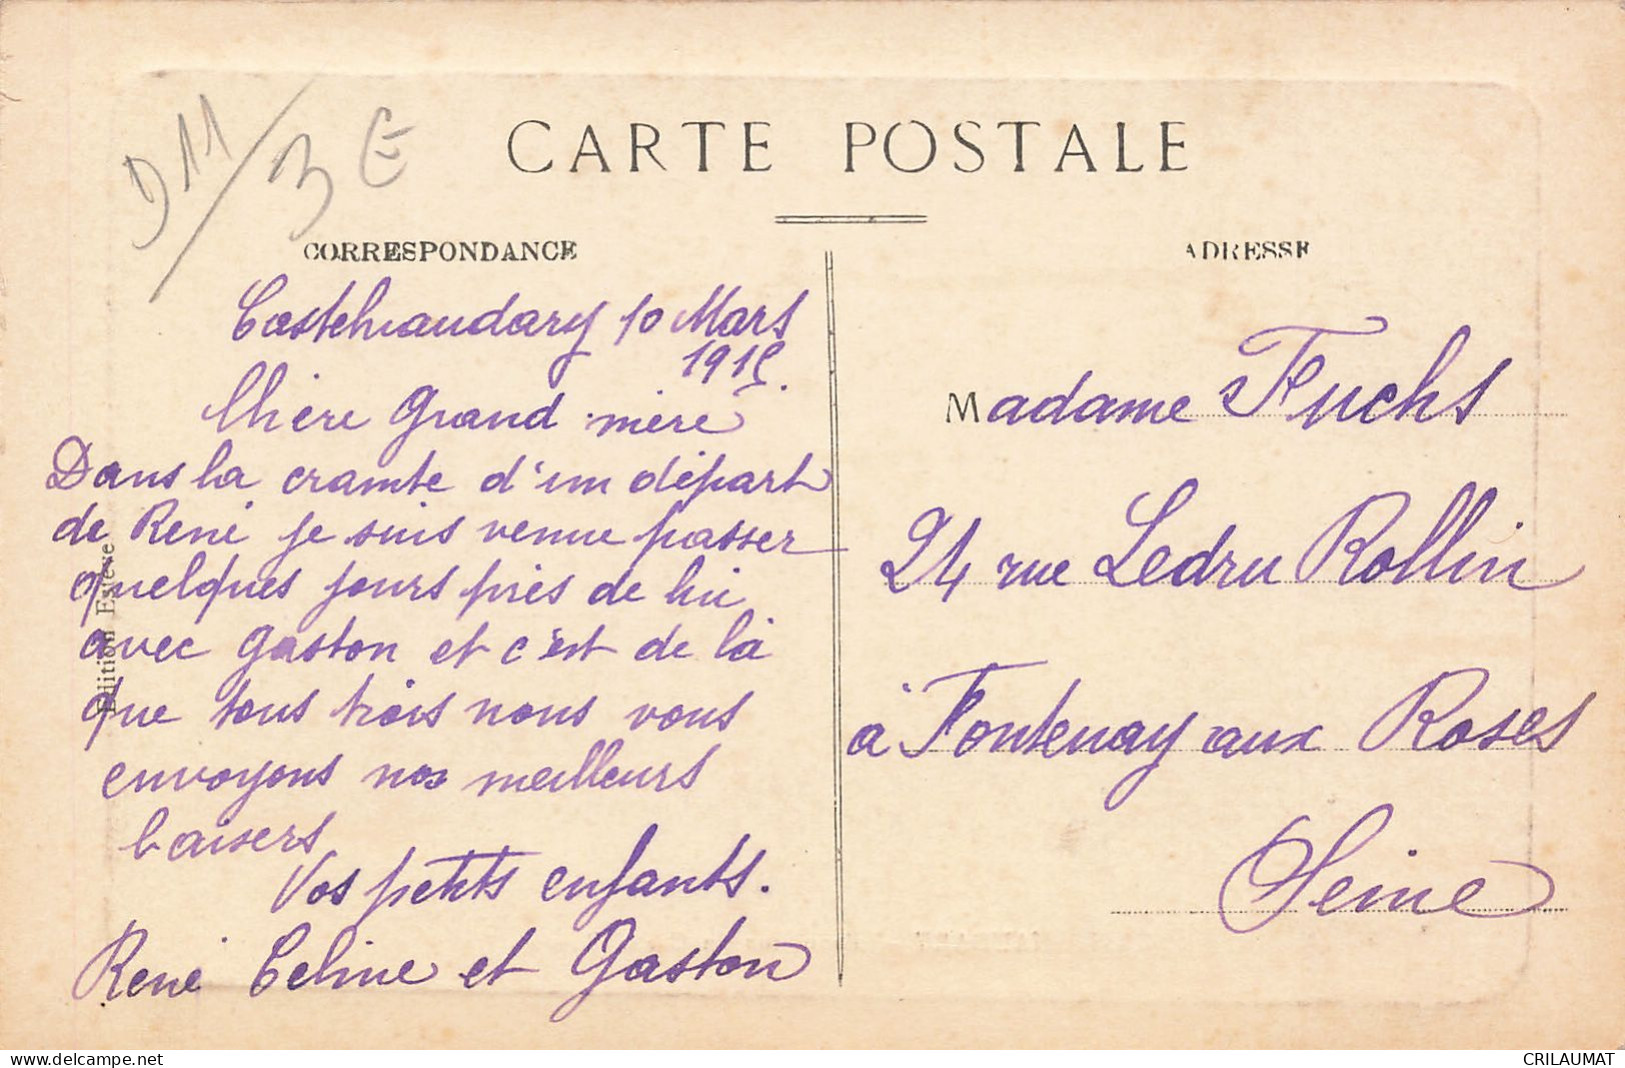 D11/3E
CARTE POSTALE
CORRESPONDANCE
ADRESSE
Castelnaudary 10 Mars
1915.
Chère Grand mère
Dans la crainte d'un départ
de René je suis venue passer
quelques jours près de lui
avec Gaston et c'est de là
que tous trois nous vous
envoyons nos meilleurs
baisers
Vos petits enfants.
René Celine et Gaston
Edition Estève
Madame Fuchs
24 rue Ledru Rollin
à Fontenay aux Roses
Seine
www.delcampe.net
CRILAUMAT